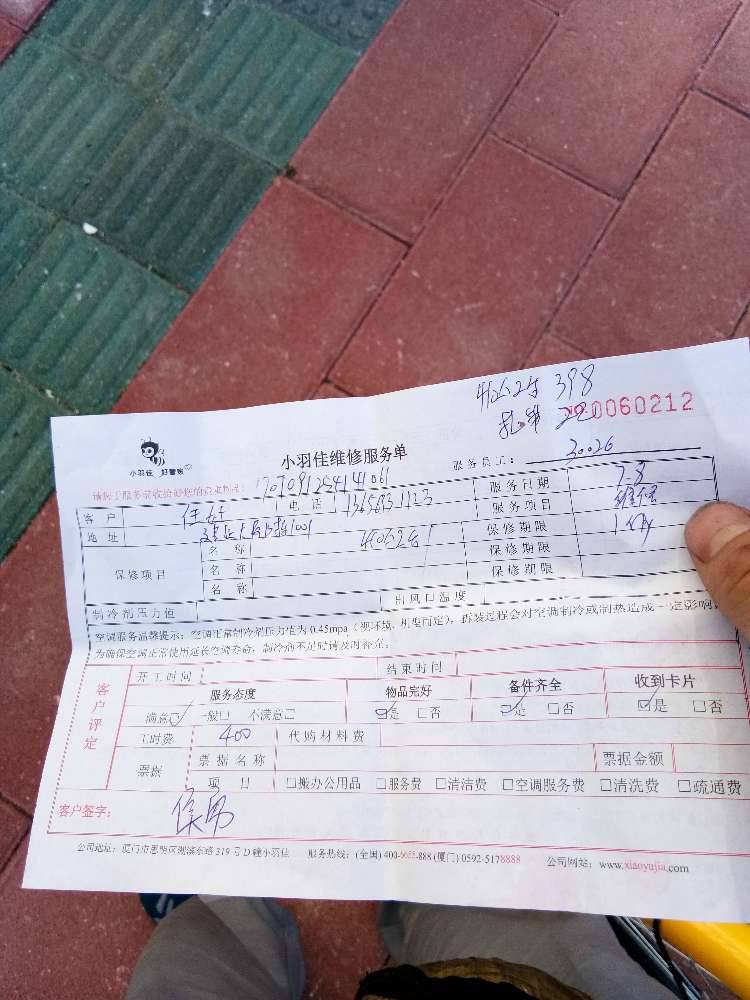 398
№0060212
小羽佳 好管家
小羽佳维修服务单
服务员工: 30026
170709125414 1061
客户 电话 服务日期 7.8
地址 1001 服务项目 维修
保修项目 名称 保修期限
名称 保修期限
名称 保修期限
制冷剂压力值 出风口温度
空调服务温馨提示:空调正常制冷剂压力值为0.45mpa(视环境、机型而定),拆装过程会对空调制冷或制热造成一定影响,
为确保空调正常使用延长空调寿命,制冷剂不足时请及时补充。
客户评定 开工时间 结束时间
服务态度 物品完好 备件齐全 收到卡片
满意☑ 一般□ 不满意□ ☑是 □否 ☑是 □否 ☑是 □否
工时费 400 代购材料费
票据 票据名称 票据金额
项目 □搬办公用品 □服务费 □清洁费 □空调服务费 □清洗费 □疏通费
客户签字:
公司地址:厦门市思明区观音山 319号D幢小羽佳 服务热线:(全国)400-6655-888 (厦门)0592-5178888 公司网站:www.xiaoyujia.com